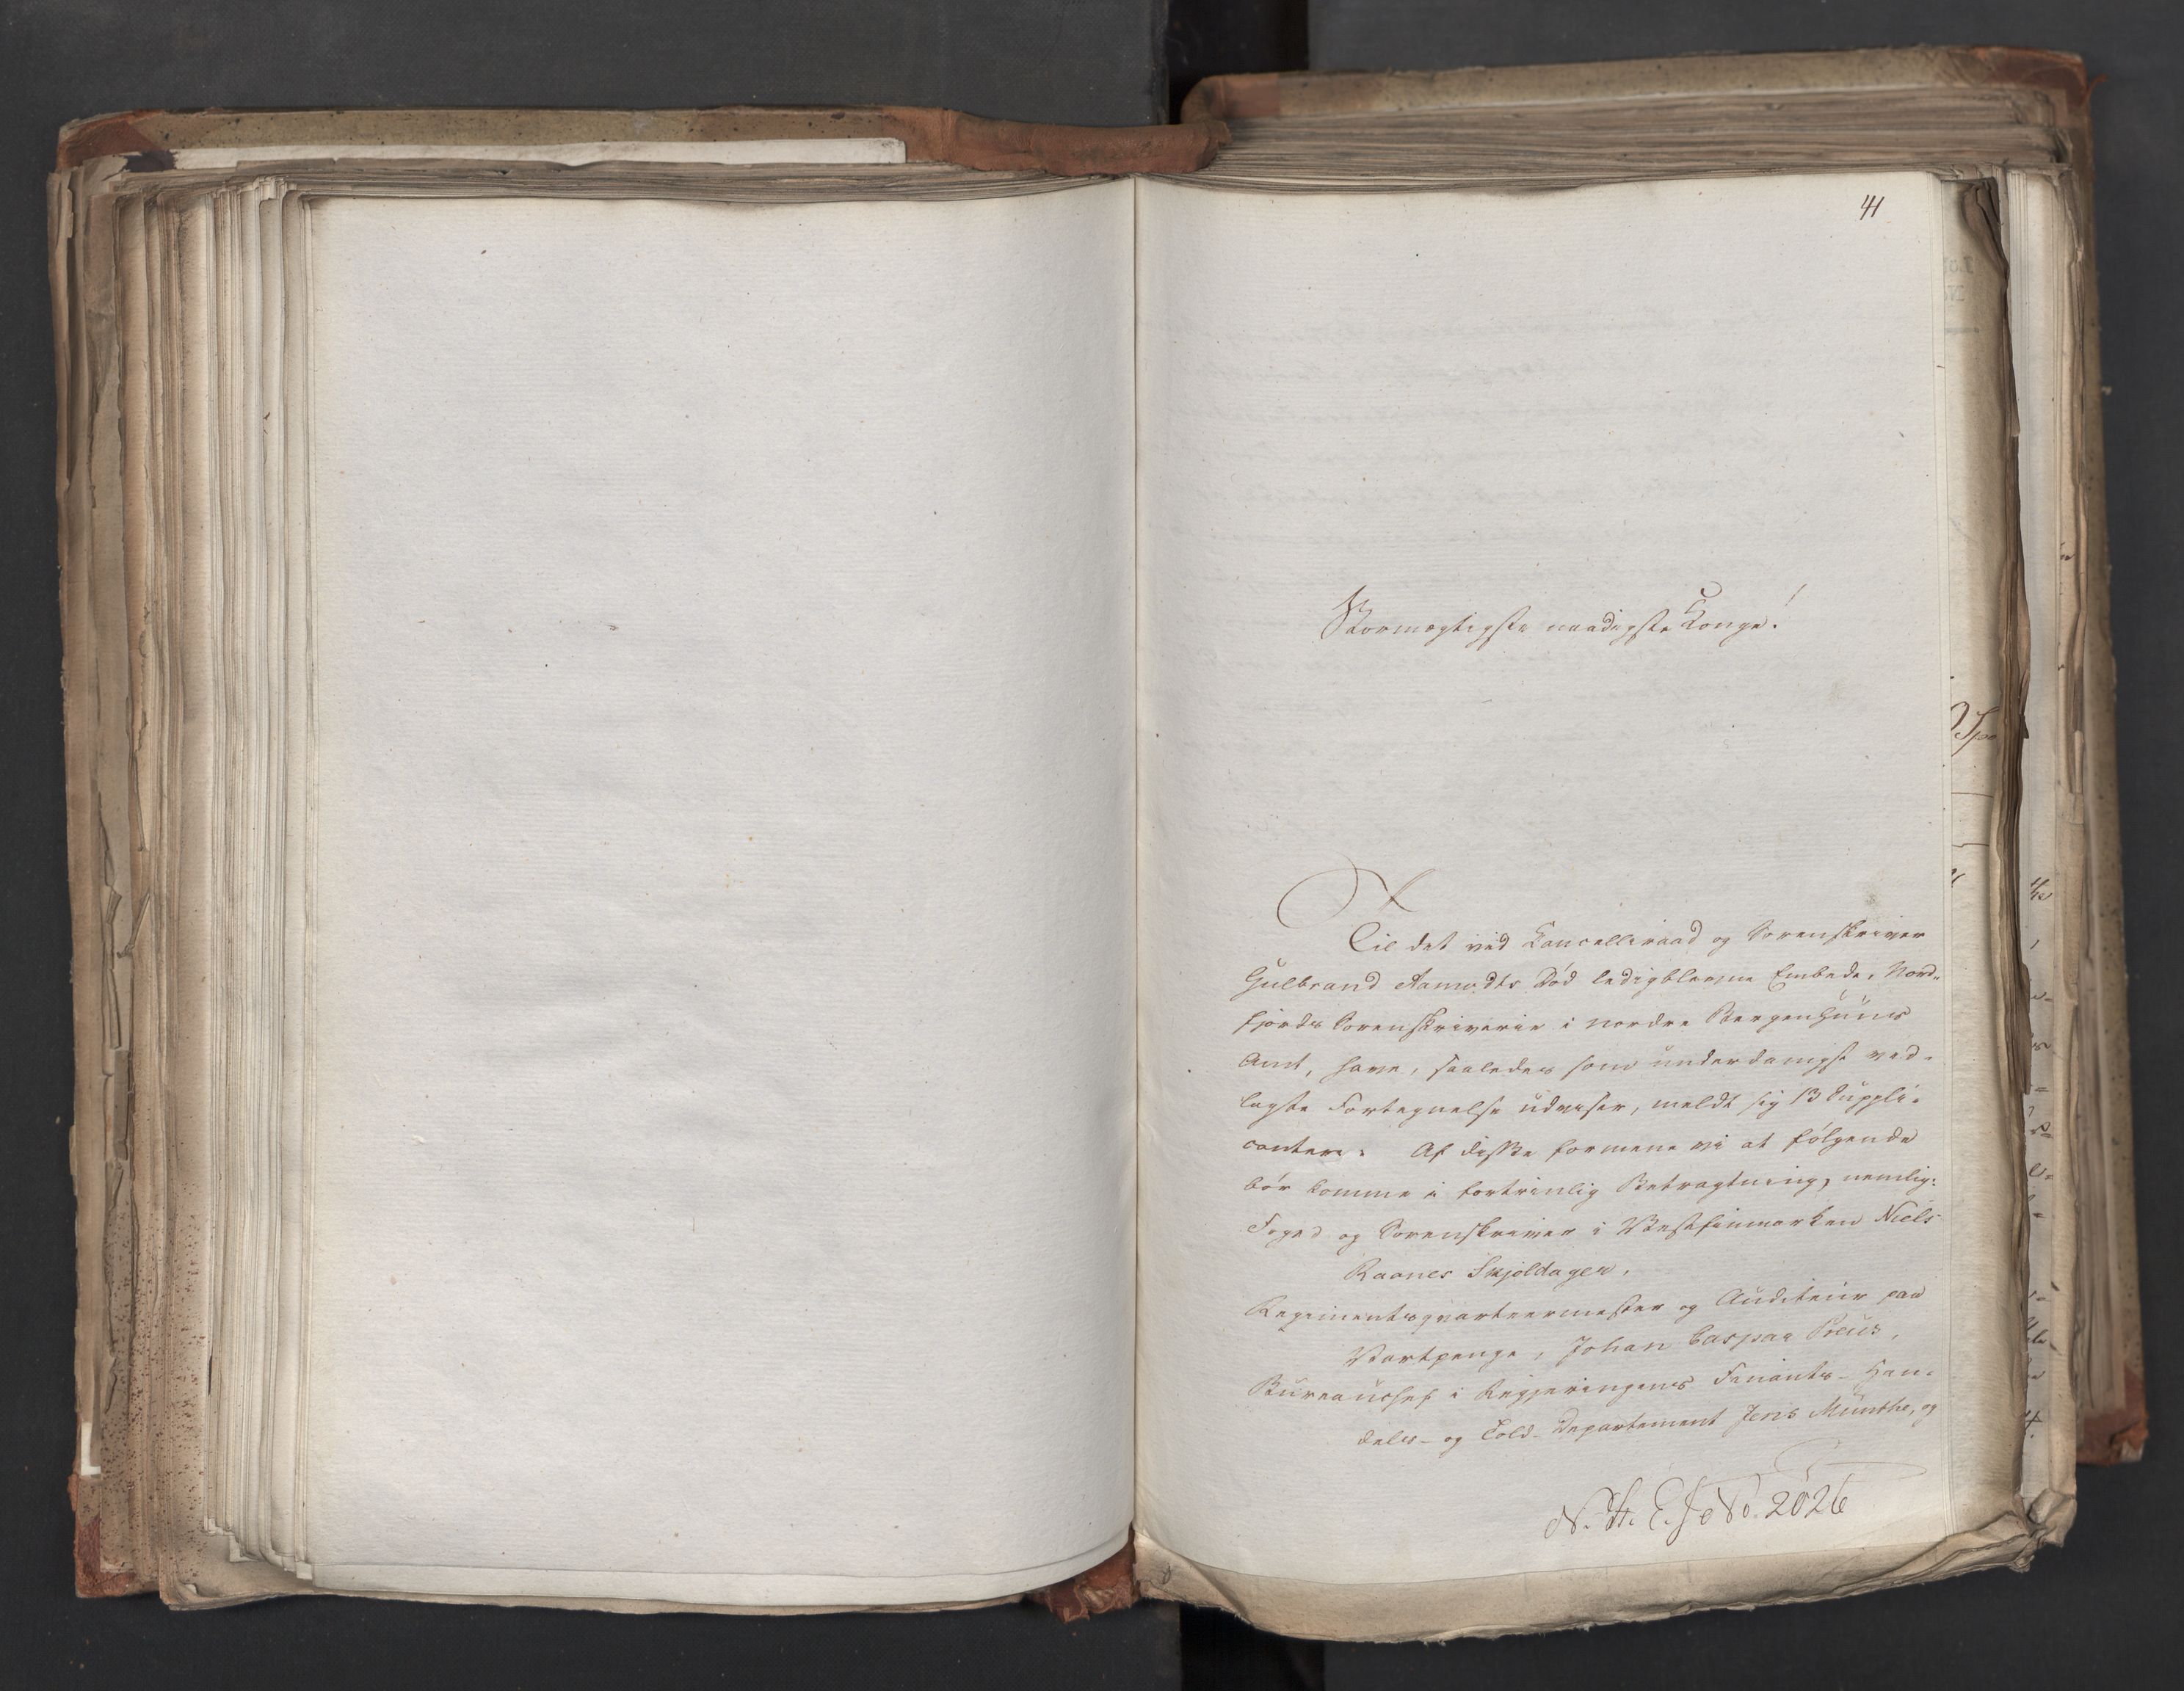 41
Stormægtigste naadigste Konge!
Til det ved Kancelliraad og Sorenskriver
Gulbrand Aamodts Død ledigblevne Embede, Nord-
fjords Sorenskriverie i nordre Bergenhuus
Amt, have, saaledes som underdanigst ved-
lagte Fortegnelse udviser, meldt sig 13 Suppli-
cantere. Af disse formene vi at følgende
bør komme i fortrinlig Betragtning, nemlig:
Foged og Sorenskriver i Vestfinmarken Niels
Raanes Skjoldager,
Regimentsqvarteermester og Auditeur paa
Vartpenge, Johan Caspar Preus,
Bureauchef i Regjeringens Finants- Han-
dels- og Told-Departement Jens Munthe, og
No. 2026